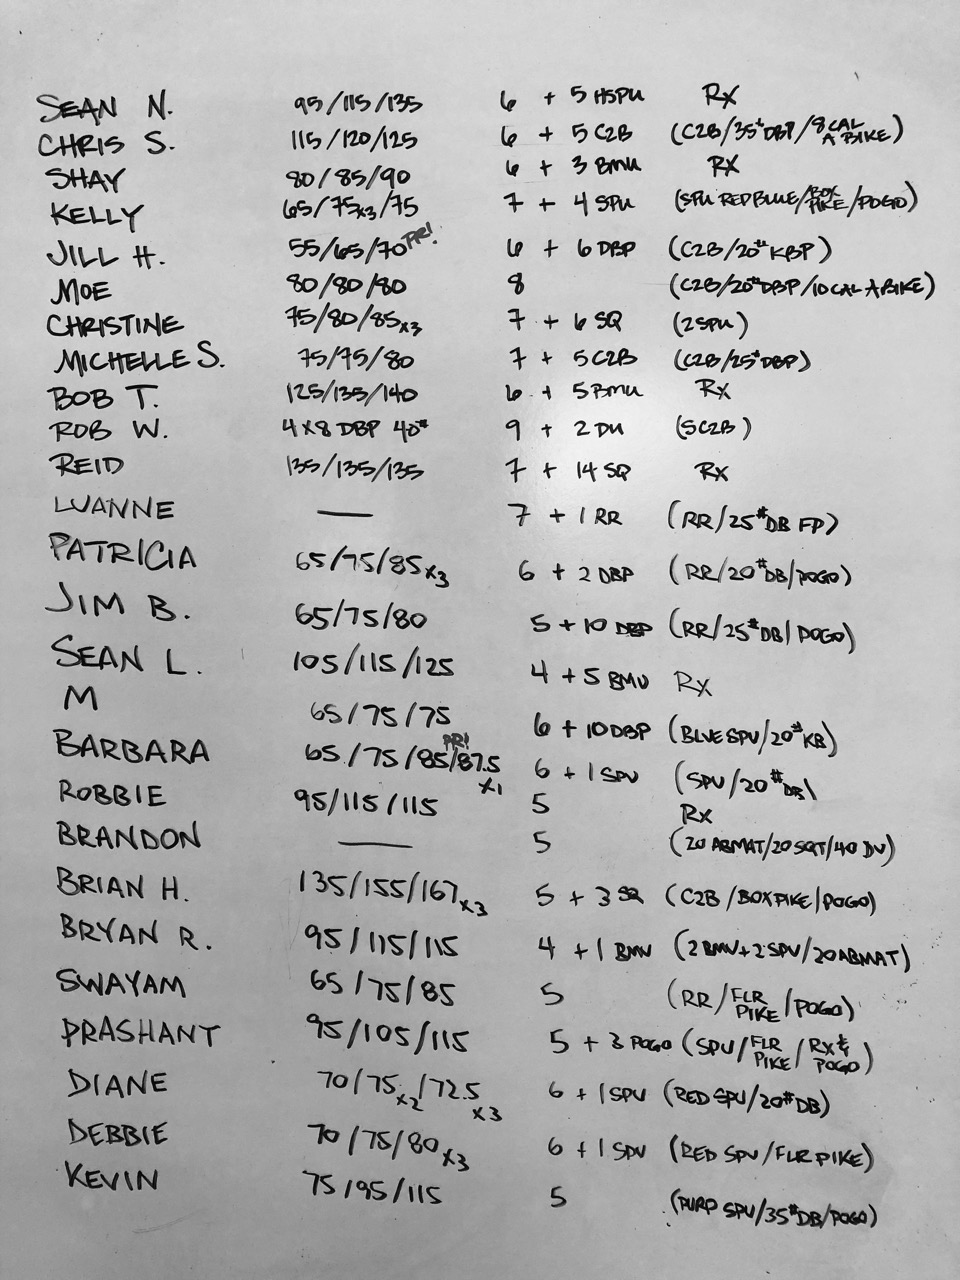 SEAN N. 95/115/135 6 + 5 HSPU RX
CHRIS S. 115/120/125 6 + 5 C2B (C2B/35# DBP/8 CAL A BIKE)
SHAY 80/85/90 6 + 3 BMU RX
KELLY 65/75x3/75 7 + 4 SPU (SPU RED BLUE/BOX PIKE/POGO)
JILL H. 55/65/70 PR! 6 + 6 DBP (C2B/20# KBP)
MOE 80/80/80 8 (C2B/20# DBP/10 CAL A BIKE)
CHRISTINE 75/80/85x3 7 + 6 SQ (2SPU)
MICHELLE S. 75/75/80 7 + 5 C2B (C2B/25# DBP)
BOB T. 125/135/140 6 + 5 BMU RX
ROB W. 4x8 DBP 40# 9 + 2 DU (5C2B)
REID 135/135/135 7 + 14 SQ RX
LUANNE — 7 + 1 RR (RR/25# DB FP)
PATRICIA 65/75/85x3 6 + 2 DBP (RR/20# DB/POGO)
JIM B. 65/75/80 5 + 10 DBP (RR/25# DB/POGO)
SEAN L. 105/115/125 4 + 5 BMU RX
M 65/75/75 6 + 10 DBP (BLUE SPU/20# KB)
BARBARA 65/75/85/87.5 x1 PR! 6 + 1 SPU (SPU/20# DB)
ROBBIE 95/115/115 5 RX
BRANDON — 5 (20 ABMAT/20 SQT/40 DU)
BRIAN H. 135/155/167x3 5 + 3 SQ (C2B/BOX PIKE/POGO)
BRYAN R. 95/115/115 4 + 1 BMU (2 BMU+2 SPU/20 ABMAT)
SWAYAM 65/75/85 5 (RR/FLR PIKE/POGO)
PRASHANT 95/105/115 5 + 3 POGO (SPU/FLR PIKE/RX & POGO)
DIANE 70/75x2/72.5x3 6 + 1 SPU (RED SPU/20# DB)
DEBBIE 70/75/80x3 6 + 1 SPU (RED SPU/FLR PIKE)
KEVIN 75/95/115 5 (PURP SPU/35# DB/POGO)